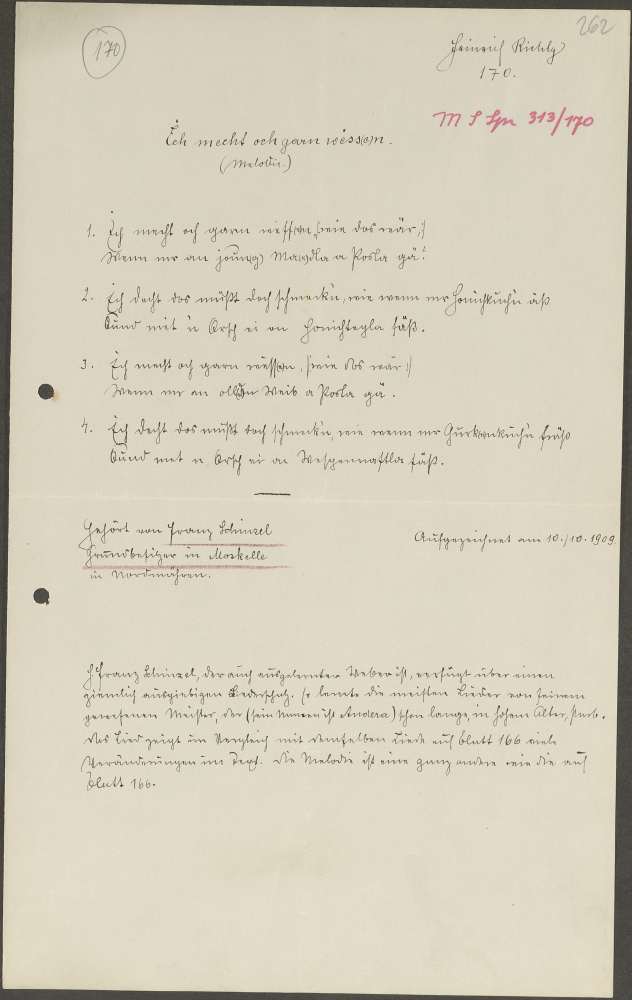 262
170
Heinrich Rietsch
170.
M S Spr 313/170
Ech mecht och garn wessen.
(Melodie.)
1. Ich mecht och garn wessen, |:wie dos wär,:|
Wenn mr an joung Madla a Posla gä?
2. Ech decht dos müßt doch schmeck'n, wie wenn mr Honichkuch'n äß
Ound met 'n Orsch ei an Honichtegla säß.
3. Ech mecht och garn wessen, |:wie dos wär:|
Wenn mr an Weib a Posla gä.
4. Ech decht dos müßt doch schmeck'n, wie wenn mr Gurkenkuch'n fräß
Ound met n Orsch ei an Wespennastla säß.
Gehört von Franz Schinzel
Grundbesitzer in Moskelle
in Nordmähren.
Aufgezeichnet am 10./10. 1909
H. Franz Schinzel, der auch ausgelernter Weber ist, verfügt über einen
ziemlich ausgiebigen Liederschatz. Er lernte die meisten Lieder von seinem
gewesenen Meister, der (sein Namen ist Andera) schon lange, in hohem Alter, starb.
Das Lied zeigt im Vergleich mit demselben Liede auf Blatt 166 viele
Veränderungen im Text. Die Melodie ist eine ganz andere wie die auf
Blatt 166.